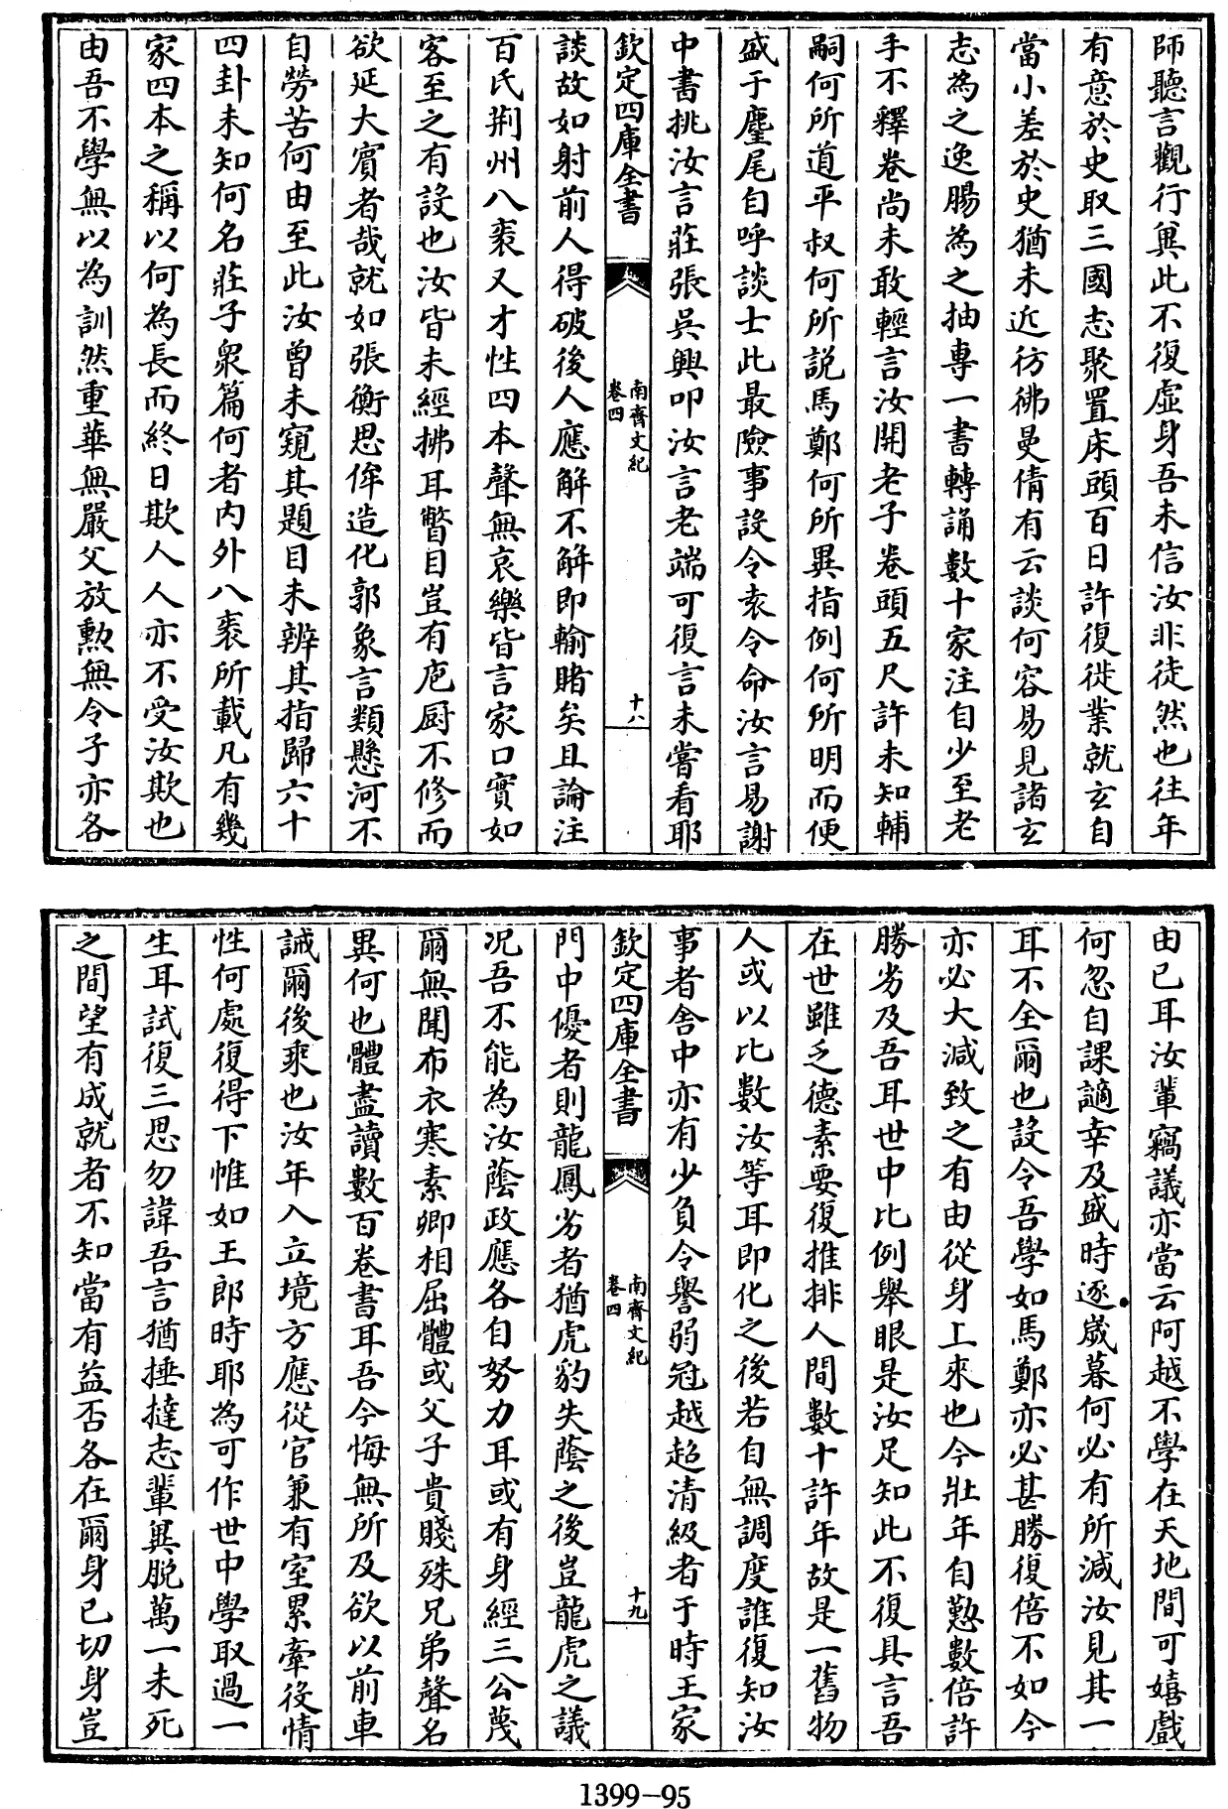 師聽言觀行冀此不復虛身吾未信汝非徒然也往年
有意於史取三國志聚置床頭百日許復徙業就玄自
當小差於史猶未近彷彿曼倩有云談何容易見諸玄
志為之逸腸為之抽專一書轉誦數十家注自少至老
手不釋卷尚未敢輕言汝開老子卷頭五尺許未知輔
嗣何所道平叔何所説馬鄭何所異指例何所明而便
盛于麈尾自呼談士此最險事設令袁令命汝言易謝
中書挑汝言莊張吳興叩汝言老端可復言未嘗看耶
欽定四庫全書
南齊文紀
卷四
十八
談故如射前人得破後人應解不解即輸賭矣且論注
百氏荆州八袠又才性四本聲無哀樂皆言家口實如
客至之有設也汝皆未經拂耳瞥目豈有庖厨不修而
欲延大賓者哉就如張衡思侔造化郭象言類懸河不
自勞苦何由至此汝曾未窺其題目未辨其指歸六十
四卦未知何名莊子衆篇何者内外八袠所載凡有幾
家四本之稱以何為長而終日欺人人亦不受汝欺也
由吾不學無以為訓然重華無嚴父放勲無令子亦各
由已耳汝輩竊議亦當云阿越不學在天地間可嬉戲
何忽自課謫幸及盛時逐歲暮何必有所減汝見其一
耳不全爾也設令吾學如馬鄭亦必甚勝復倍不如今
亦必大減致之有由從身上來也今壯年自懃數倍許
勝劣及吾耳世中比例舉眼是汝足知此不復具言吾
在世雖乏德素要復推排人間數十許年故是一舊物
人或以比數汝等耳即化之後若自無調度誰復知汝
事者舍中亦有少負令譽弱冠越超清級者于時王家
欽定四庫全書
南齊文紀
卷四
十九
門中優者則龍鳳劣者猶虎豹失蔭之後豈龍虎之議
况吾不能為汝蔭政應各自努力耳或有身經三公蔑
爾無聞布衣寒素卿相屈體或父子貴賤殊兄弟聲名
異何也體盡讀數百卷書耳吾今悔無所及欲以前車
誡爾後乘也汝年入立境方應從官兼有室累牽役情
性何處復得下帷如王郎時耶為可作世中學取過一
生耳試復三思勿諱吾言猶捶撻志輩冀脱萬一未死
之間望有成就者不知當有益否各在爾身已切身豈
1399-95